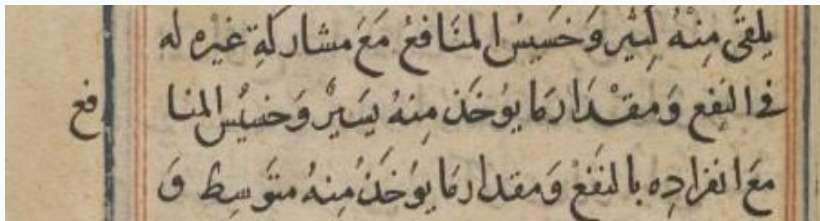 يلقى منه كثير وخسيس المنافع مع مشاركة غيره له
في النفع ومقدار ما يوخذ منه يسير وخسيس المنا
فع
مع انفراده بالنفع ومقدار ما يوخذ منه متوسط و